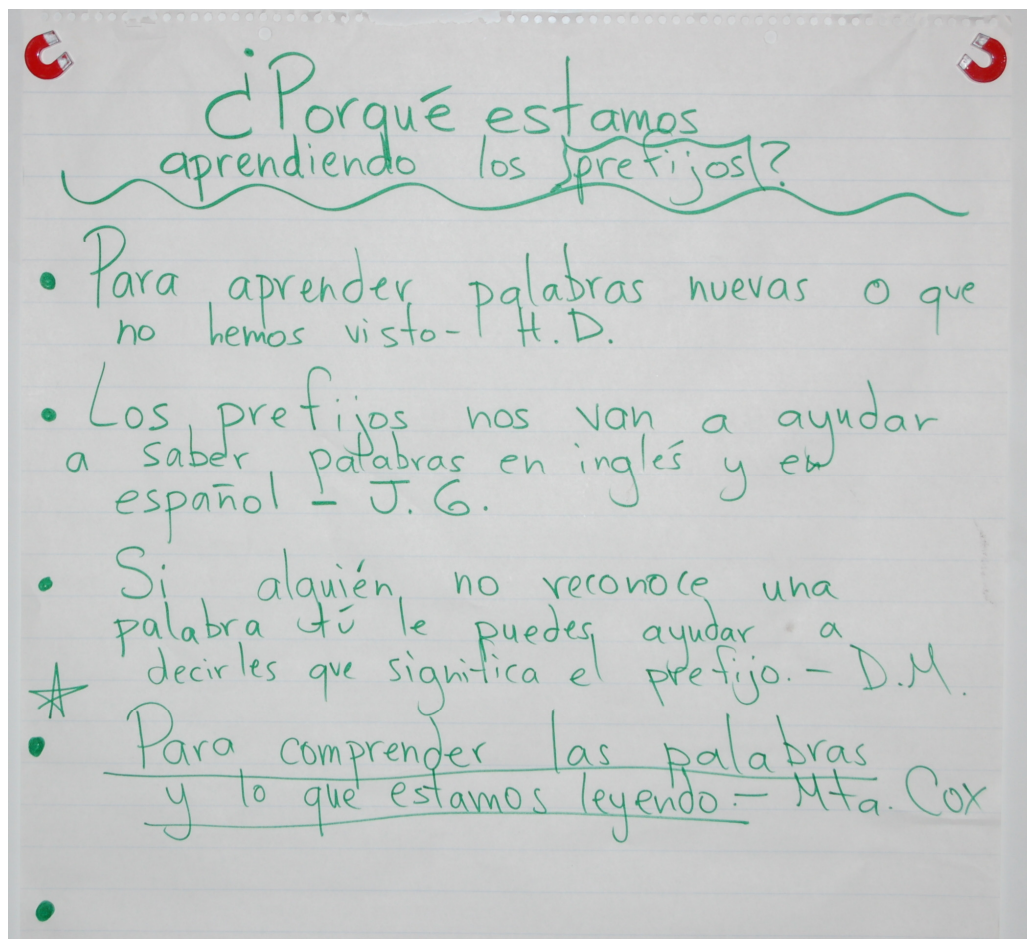 ¿Porqué estamos
aprendiendo los prefijos?
• Para aprender palabras nuevas o que
no hemos visto- H.D.
• Los prefijos nos van a ayudar
a saber palabras en inglés y en
español - J.G.
• Si alguién no reconoce una
palabra tú le puedes ayudar a
decirles que significa el prefijo. - D.M.
• Para comprender las palabras
y lo que estamos leyendo. - Mta. Cox
•